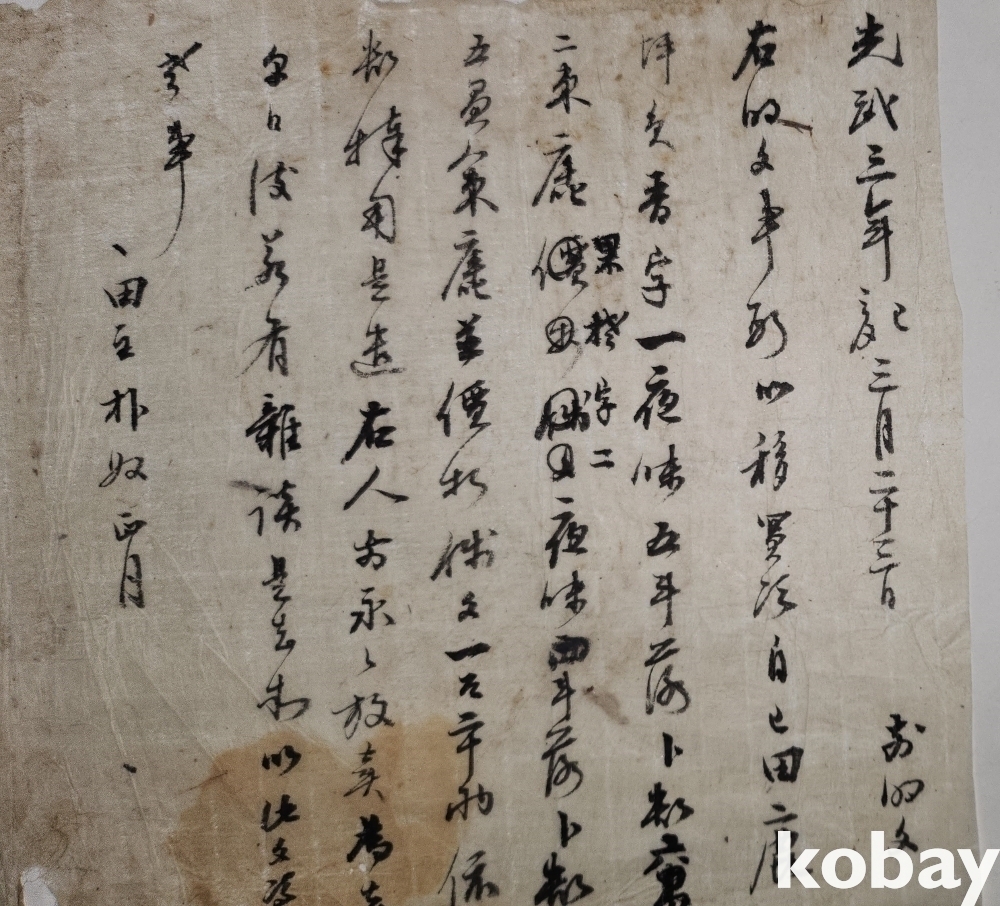 光武三年己亥三月二十三日 前明文
右明文事段以移買次自己田二庫
伏在晋字一夜味五斗落卜數六負
二束庫果楚字二夜味四斗落卜數
五負八束庫並價折錢文一百二十兩依
數捧用是遣右人前永永放賣爲去
乎日後若有雜談是去等以此文憑
考事
田主朴奴正月
kobay